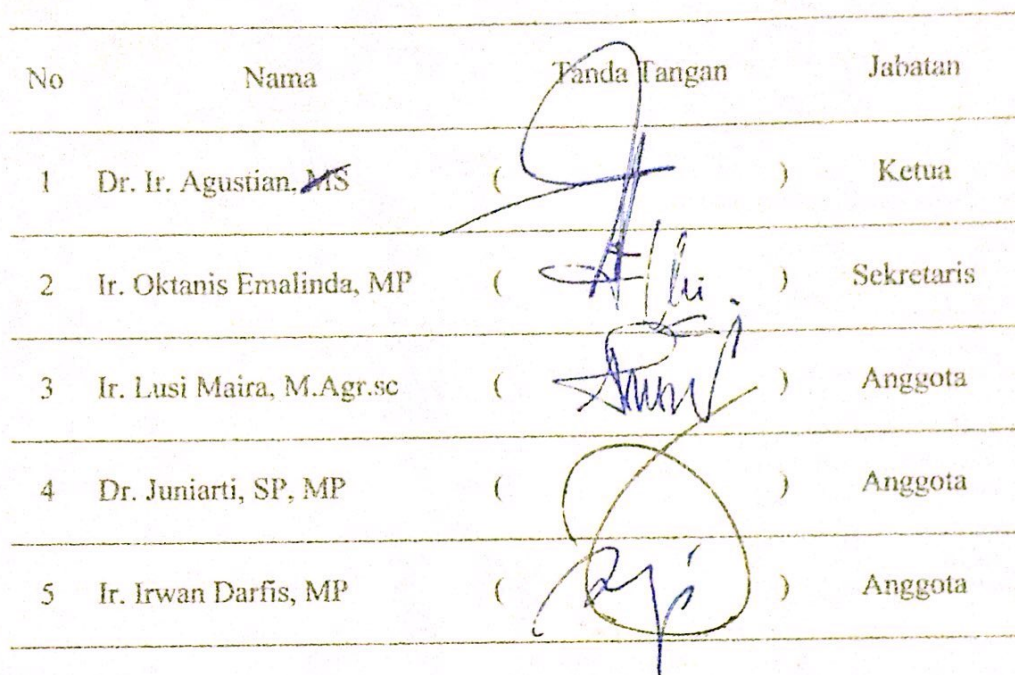 No Nama Tanda Tangan Jabatan
1 Dr. Ir. Agustian, MS ( ) Ketua
2 Ir. Oktanis Emalinda, MP ( ) Sekretaris
3 Ir. Lusi Maira, M.Agr.sc ( ) Anggota
4 Dr. Juniarti, SP, MP ( ) Anggota
5 Ir. Irwan Darfis, MP ( ) Anggota